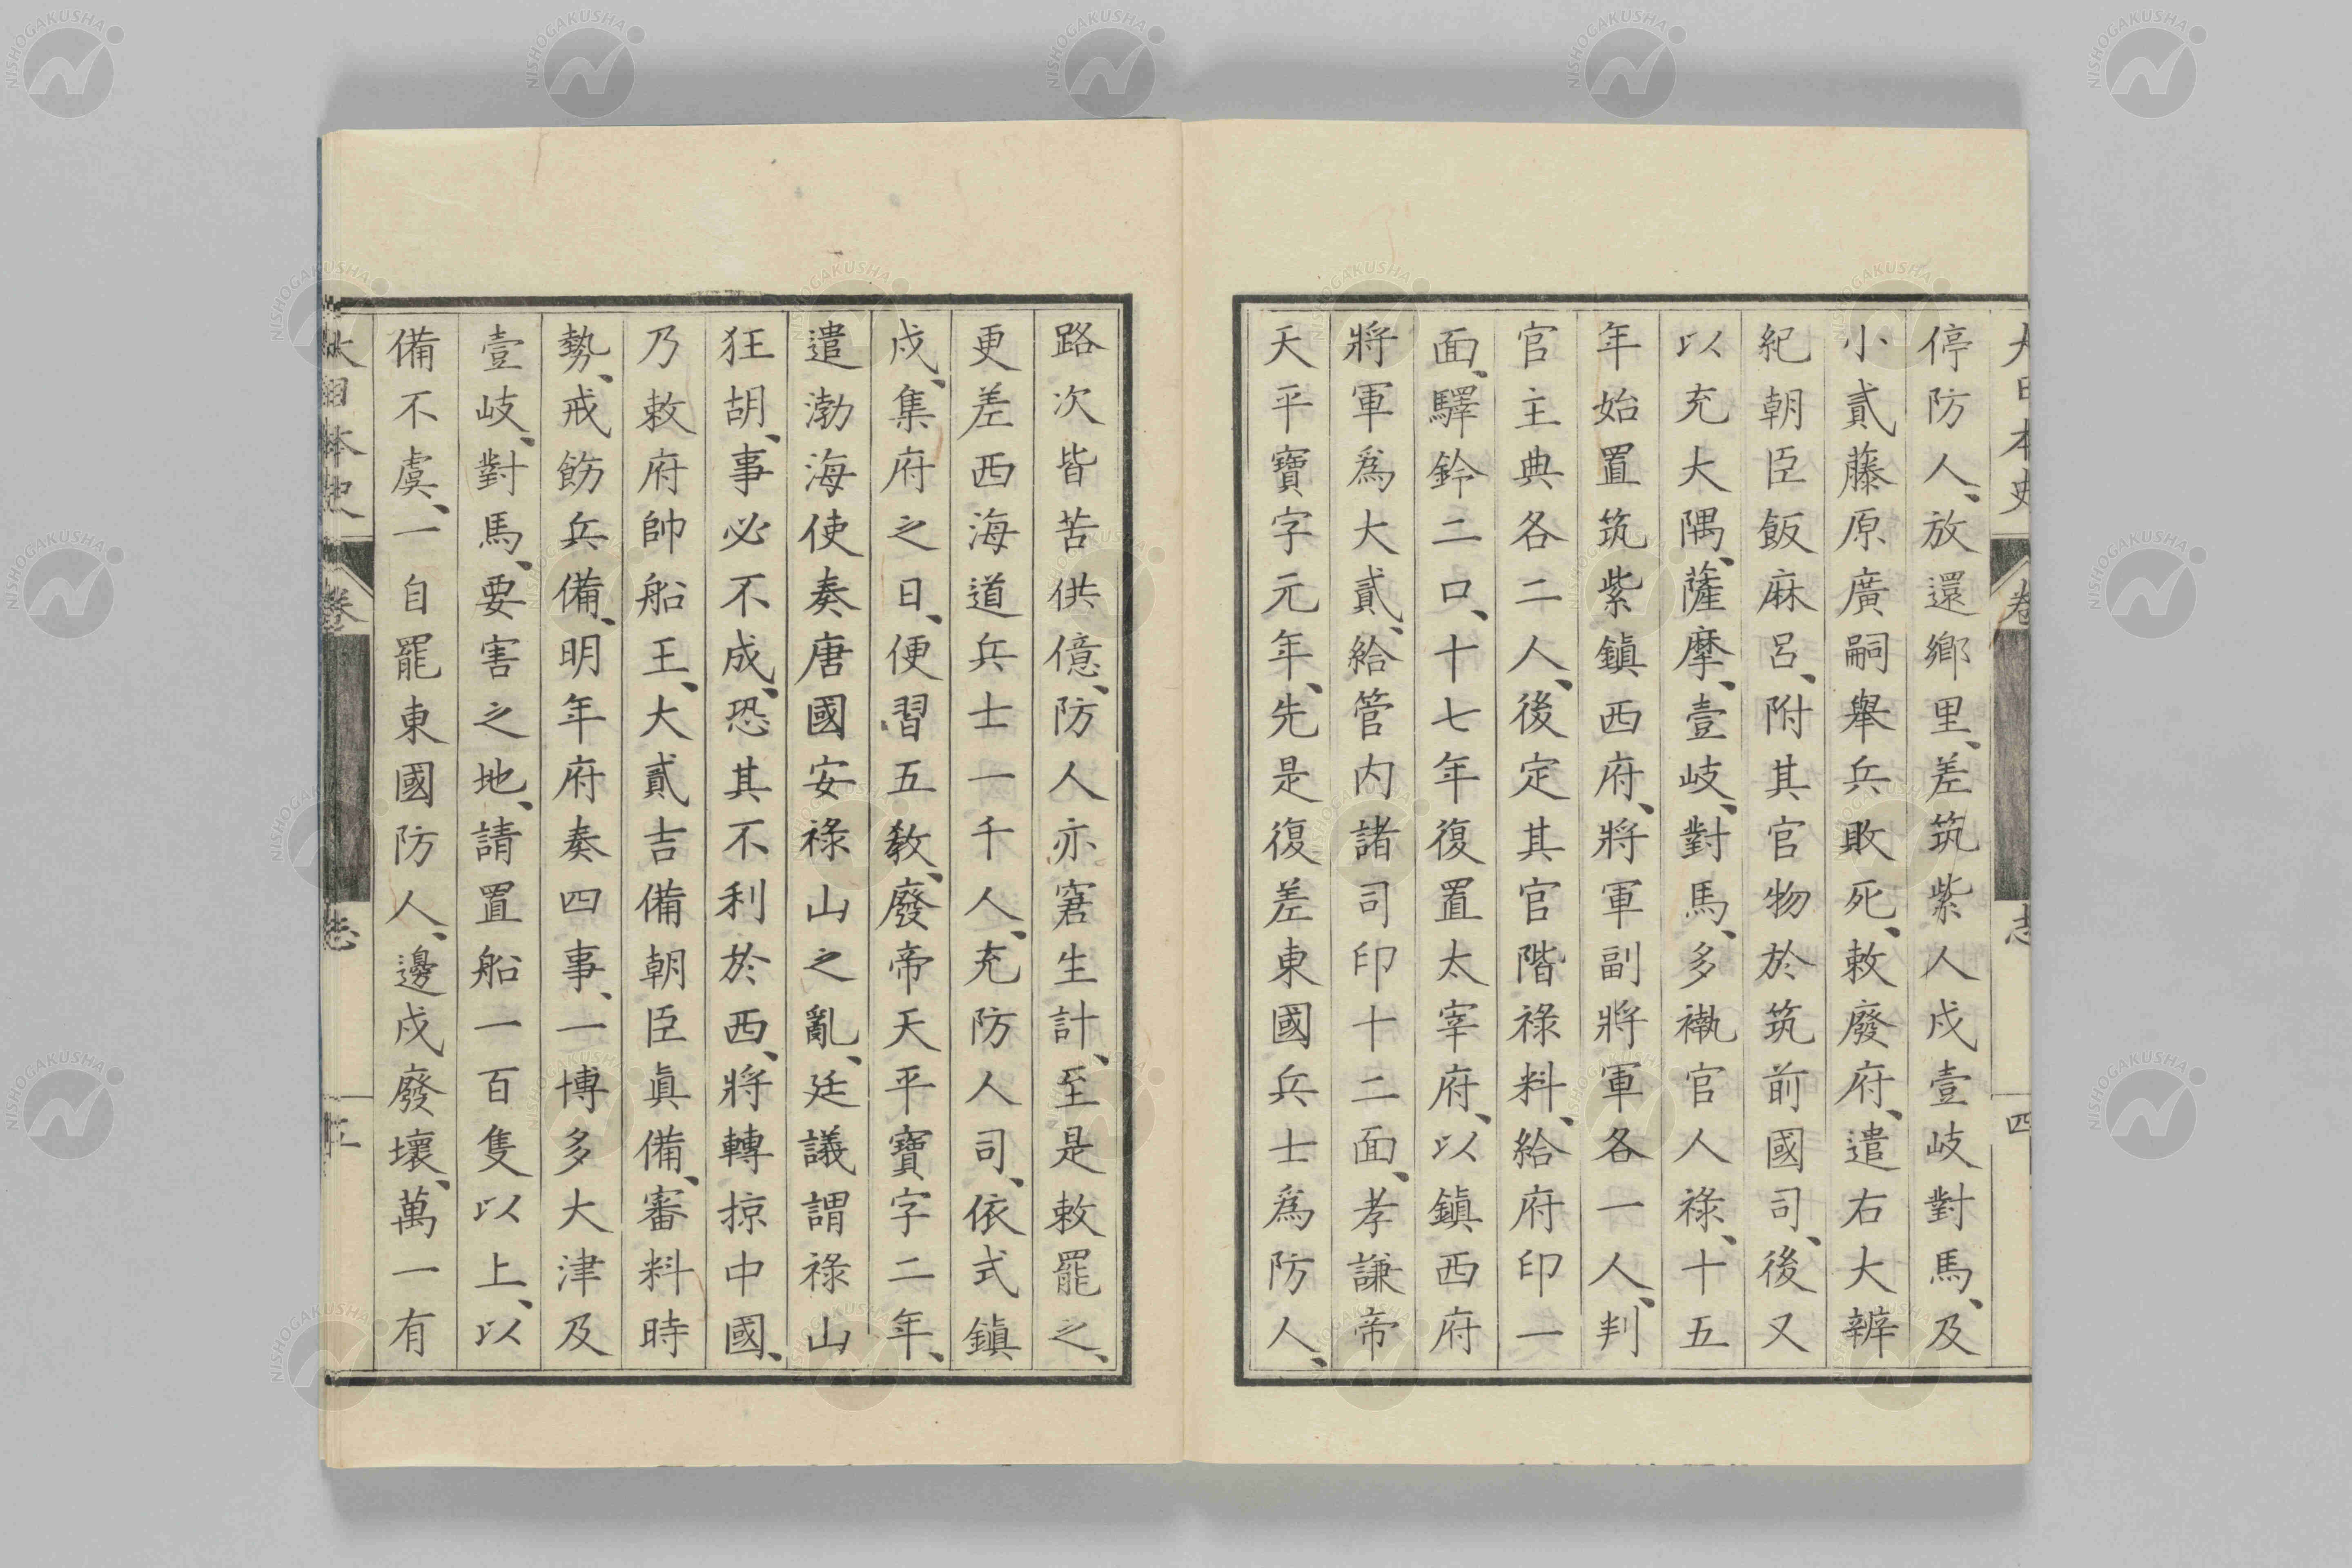 大日本史 卷 志 四
停防人、放還鄉里、差筑紫人戍壹岐對馬、及
小貳藤原廣嗣舉兵敗死、敕廢府、遣右大辨
紀朝臣飯麻呂、附其官物於筑前國司、後又
以充大隅、薩摩、壹岐、對馬、多褹官人祿、十五
年始置筑紫鎮西府、將軍副將軍各一人、判
官主典各二人、後定其官階祿料、給府印一
面、驛鈴二口、十七年復置太宰府、以鎮西府
將軍爲大貳、給管內諸司印十二面、孝謙帝
天平寶字元年、先是復差東國兵士爲防人、
路次皆苦供億、防人亦窘生計、至是敕罷之、
更差西海道兵士一千人、充防人司、依式鎮
戍、集府之日、便習五教、廢帝天平寶字二年、
遣渤海使奏唐國安祿山之亂、廷議謂祿山
狂胡、事必不成、恐其不利於西、將轉掠中國、
乃敕府帥船王、大貳吉備朝臣眞備、審料時
勢、戒飭兵備、明年府奏四事、一博多大津及
壹岐、對馬、要害之地、請置船一百隻以上、以
備不虞、一自罷東國防人、邊戍廢壞、萬一有
大日本史 卷 志 五
NISHOGAKUSHA